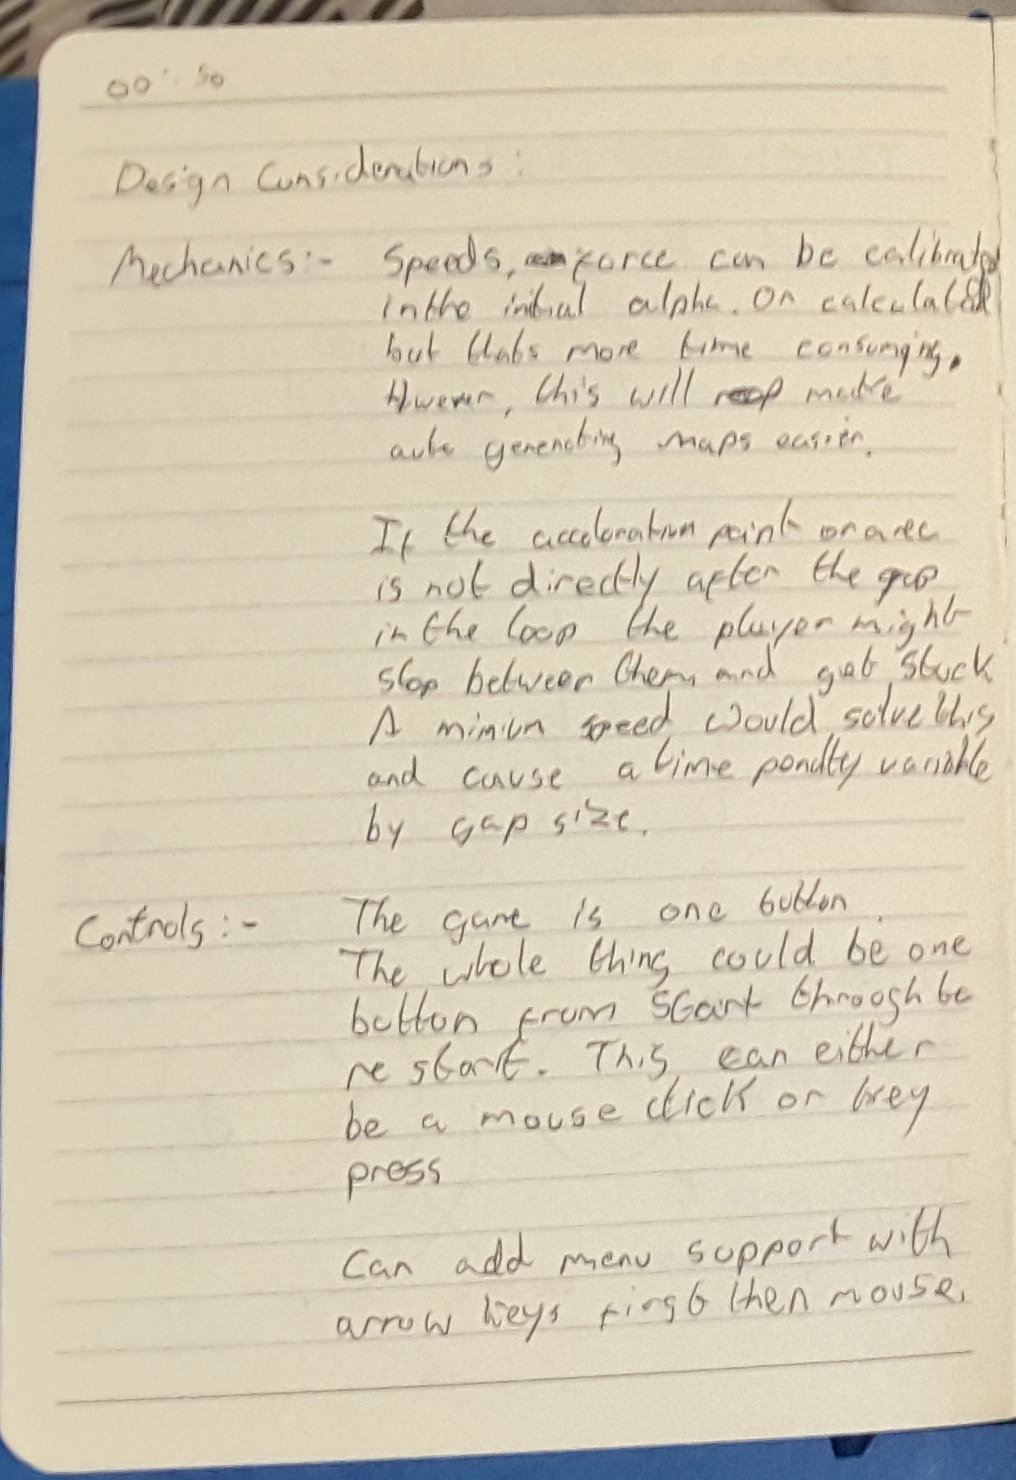 00:50
Design Considerations:
Mechanics:- Speeds, force can be calibrated
in the initial alpha. Or calculated
but thats more time consuming.
However, this will make
auto generating maps easier.
If the acceleration point or area
is not directly after the gap
in the loop the player might
stop between them and get stuck
A minimun speed would solve this
and cause a time penalty variable
by gap size.
Controls:- The game is one button.
The whole thing could be one
button from start through to
restart. This can either
be a mouse click or key
press
Can add menu support with
arrow keys first then mouse.